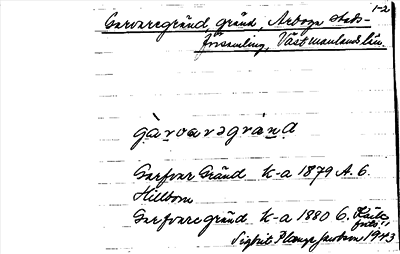 1-2
Garvaregränd, gränd, Arboga stads-
församling, Västmanlands län.
gàrvarəgrän̄d
Garfvar Gränd k-a 1879 A. 6.
Hillbom
Garfvaregränd k-a 1880 6.
Sigfrid Jacobson 1943